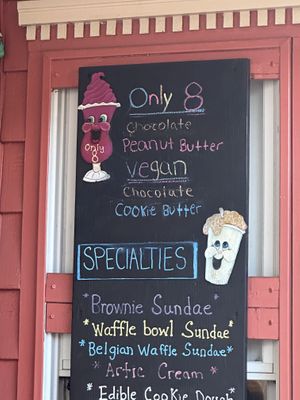 Only 8
Chocolate
Peanut Butter
Vegan
Chocolate
Cookie Butter
Only
8
SPECIALTIES
*Brownie Sundae*
*Waffle bowl Sundae*
*Belgian Waffle Sundae*
*Artic Cream*
*Edible Cookie Dough*